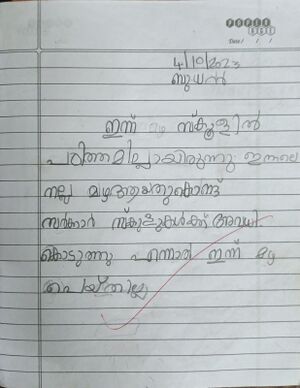 PAPER
Date / / /
4/10/2023
ബുധൻ
ഇന്ന് മഴ സ്കൂളിൽ
പഠിത്തമില്ലായിരുന്നു. ഇന്നലെ
നല്ല മഴആയതുകൊണ്ട്
സർക്കാർ സ്കൂളുകൾക്ക് അവധി
കൊടുത്തു എന്നാൽ ഇന്ന് മഴ
പെയ്തില്ല